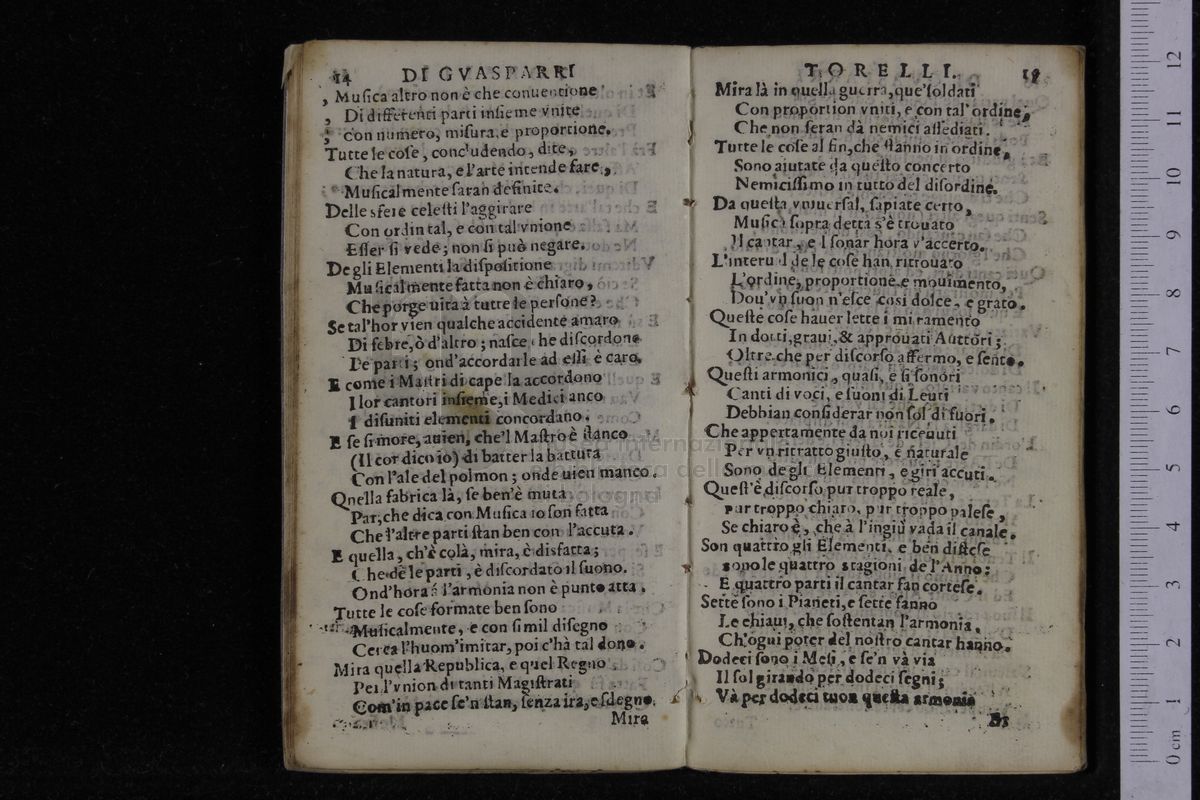 14 DI GVASPARRI
, Musica altro non è che conuentione
, Di differenti parti insieme vnite
; Con numero, misura, e proportione.
Tutte le cose, concludendo, dite,
Che la natura, e l'arte intende fare,
Musicalmente saran definite.
Delle sfere celesti l'aggirare
Con ordin tal, e con tal vnione
Esser si vede; non si può negare.
De gli Elementi la dispositione
Musicalmente fatta non è chiaro,
Che porge uita à tutte le persone?
Se tal'hor vien qualche accidente amaro
Di febre, ò d'altro; nasce che discordono
Le parti; ond'accordarle ad essi è caro.
E come i Mastri di capella accordono
I lor cantori insieme, i Medici anco
I disuniti elementi concordano.
E se si more, auien, che'l Mastro è stanco
(Il cor dico io) di batter la battuta
Con l'ale del polmon; onde uien manco.
Quella fabrica là, se ben'è muta
Par, che dica con Musica io son fatta
Che l'altre parti stan ben con l'accuta.
E quella, ch'è colà, mira, è disfatta;
Che de le parti, è discordato il suono.
Ond'hora l'armonia non è punto atta.
Tutte le cose formate ben sono
Musicalmente, e con simil disegno
Cerca l'huom'imitar, poi c'hà tal dono.
Mira quella Republica, e quel Regno
Per l'vnion di tanti Magistrati
Com'in pace se'n stan, senza ira, e sdegno.
Mira
TORELLI. 15
Mira là in quella guerra, que'soldati
Con proportion vniti, e con tal'ordine,
Che non seran dà nemici assediati.
Tutte le cose al fin, che stanno in ordine,
Sono aiutate da questo concerto
Nemicissimo in tutto del disordine.
Da questa vniuersal, sapiate certo,
Musica sopra detta s'è trouato
Il cantar, e l sonar hora v'accerto.
L'interual de le cose han ritrouato
L'ordine, proportione, e mouimento,
Dou'vn suon n'esce cosi dolce, e grato.
Queste cose hauer lette i mi ramento
In dotti, graui, & approuati Auttori;
Oltre che per discorso affermo, e sento.
Questi armonici, quasi, e si sonori
Canti di voci, e suoni di Leuti
Debbian considerar non sol di fuori.
Che appertamente da noi riceuuti
Per vn ritratto giusto, e naturale
Sono de gli Elementi, e giri accuti.
Quest'è discorso pur troppo reale,
pur troppo chiaro, pur troppo palese,
Se chiaro è, che à l'ingiù vada il canale.
Son quattro gli Elementi, e ben distese
sono le quattro stagioni de l'Anno:
E quattro parti il cantar fan cortese.
Sette sono i Pianeti, e sette fanno
Le chiaui, che sostentan l'armonia,
Ch'ogui poter del nostro cantar hanno.
Dodeci sono i Mesi, e se'n và via
Il sol girando per dodeci segni;
Và per dodeci tuon questa armonia